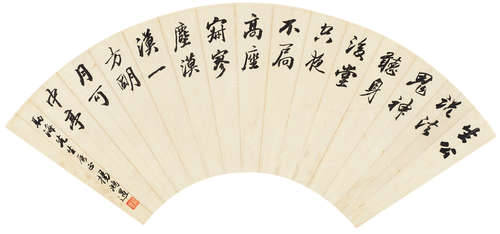 生公
說法
鬼神
聽身
後堂
空夜
不扃
高座
寂寥
塵漠
漠一
方明
月可
中亭
海先生屬正 楊